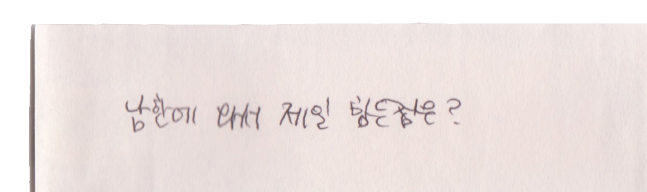 남한에 와서 제일 힘든점은?